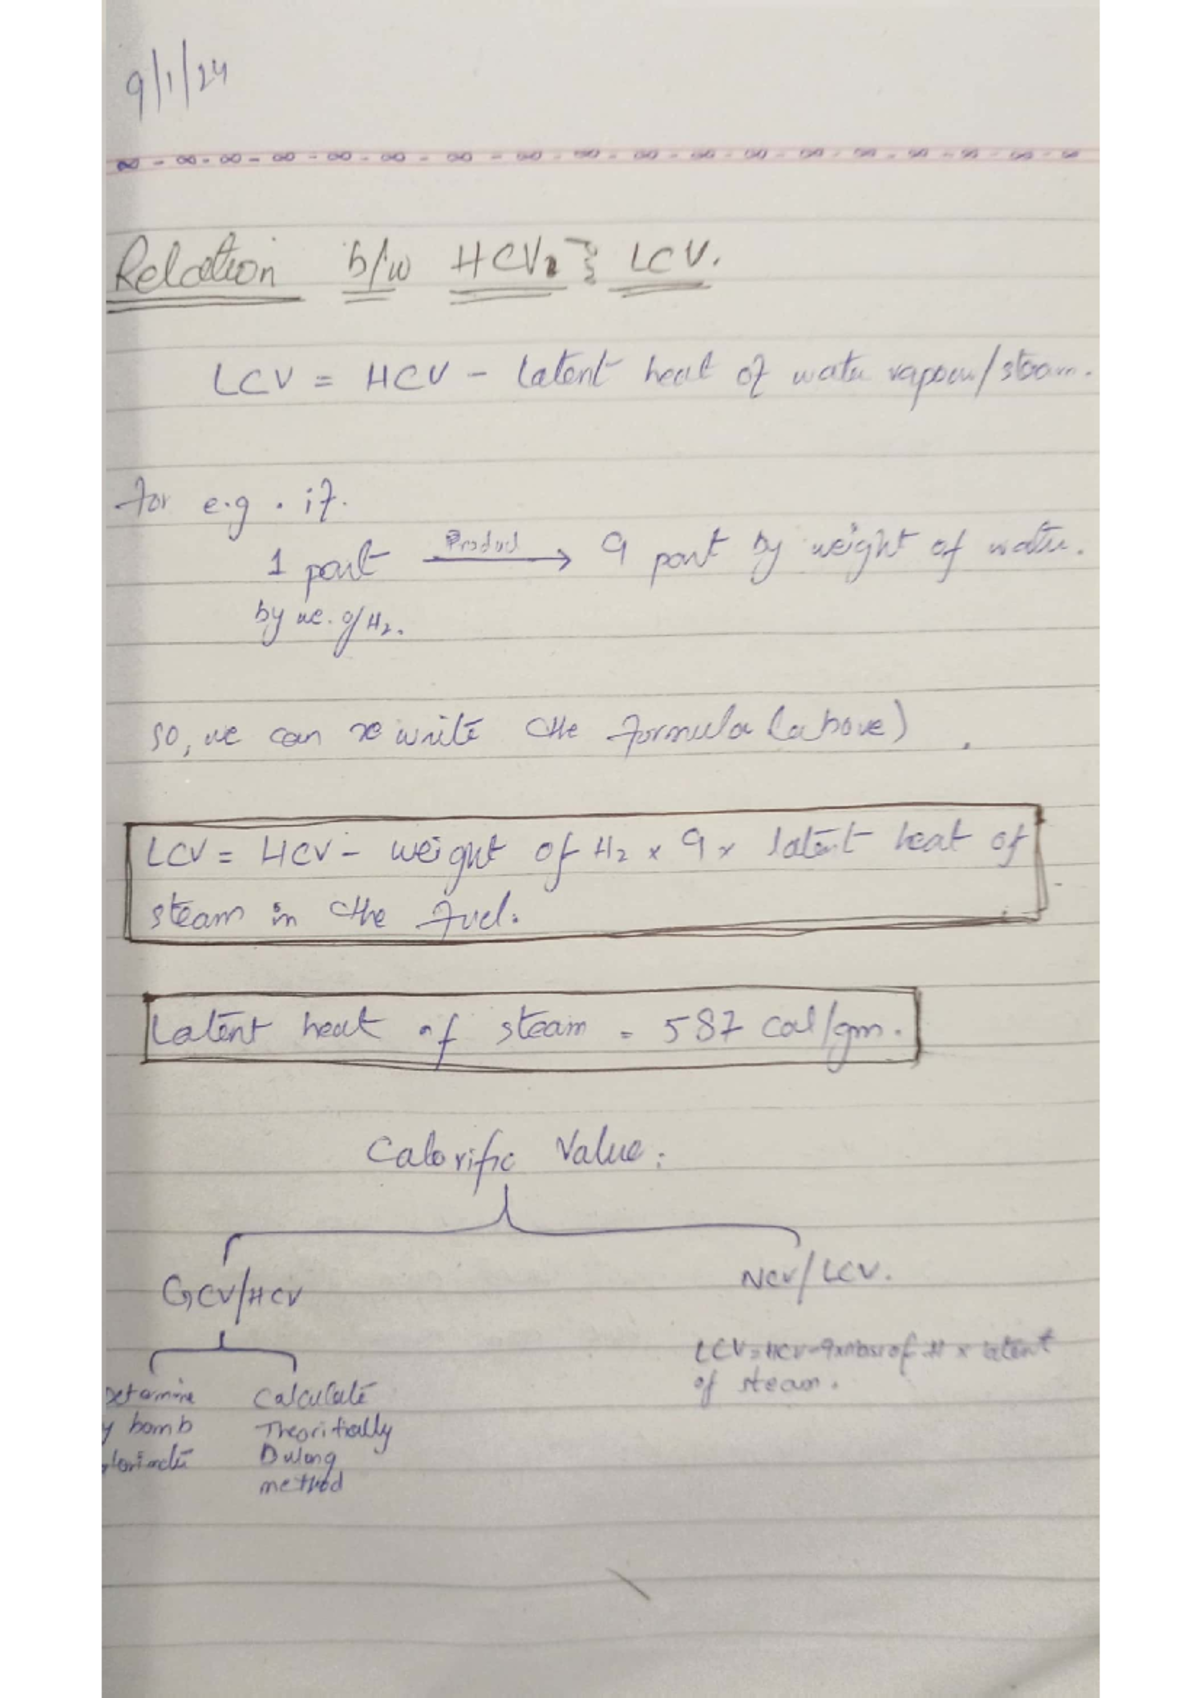 9/1/24
Relation b/w HCV & LCV.
LCV = HCV - latent heat of water vapour/steam.
For e.g. if.
1 part Product → 9 part by weight of water.
by we. of H₂.
so, we can rewrite the formula (above).
LCV = HCV - weight of H₂ × 9 × latent heat of
steam in the fuel.
Latent heat of steam = 587 cal/gm.
Calorific Value:
GCV/HCV
NCV/LCV.
LCV = HCV - 9 × mass of H × latent
of steam.
etermine
y bomb
Calculate
Theoritially
Dulong
method